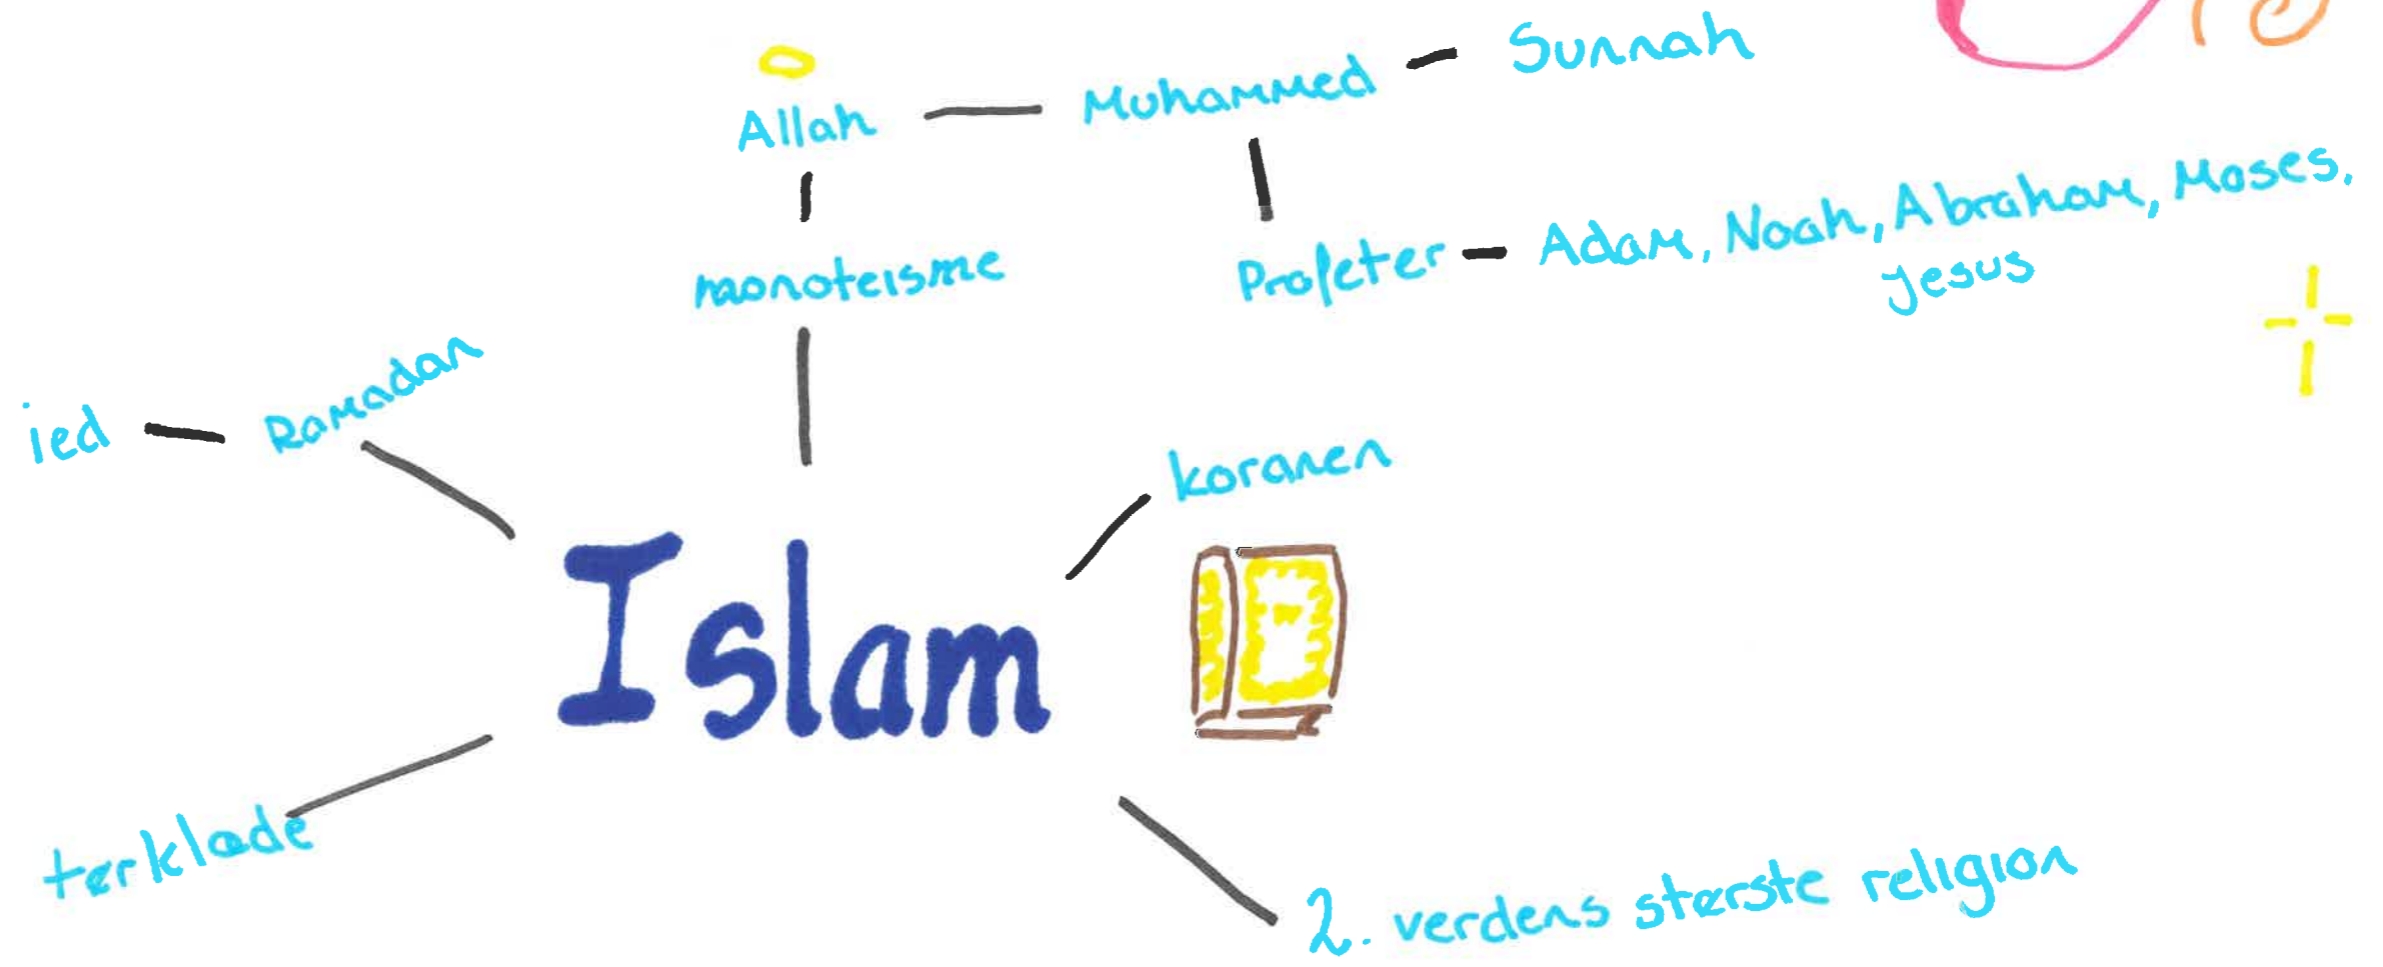 Sunnah
Allah
Muhammed
monoteisme
Profeter
Adam, Noah, Abraham, Moses,
Jesus
ied
Ramadan
koranen
Islam
tørklæde
2. verdens største religion